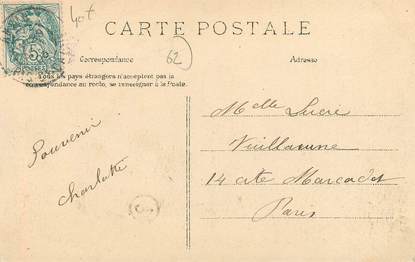 40f
CARTE POSTALE
62
Correspondance
Adresse
Tous les pays étrangers n'acceptent pas la
correspondance au recto, se renseigner à la Poste.
Souvenir
Charlotte
Melle
Vuillaume
14 cité Marcadet
Paris